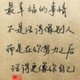 最幸福的事情
不是活得像别人
而是在努力之后
活得更像你自己